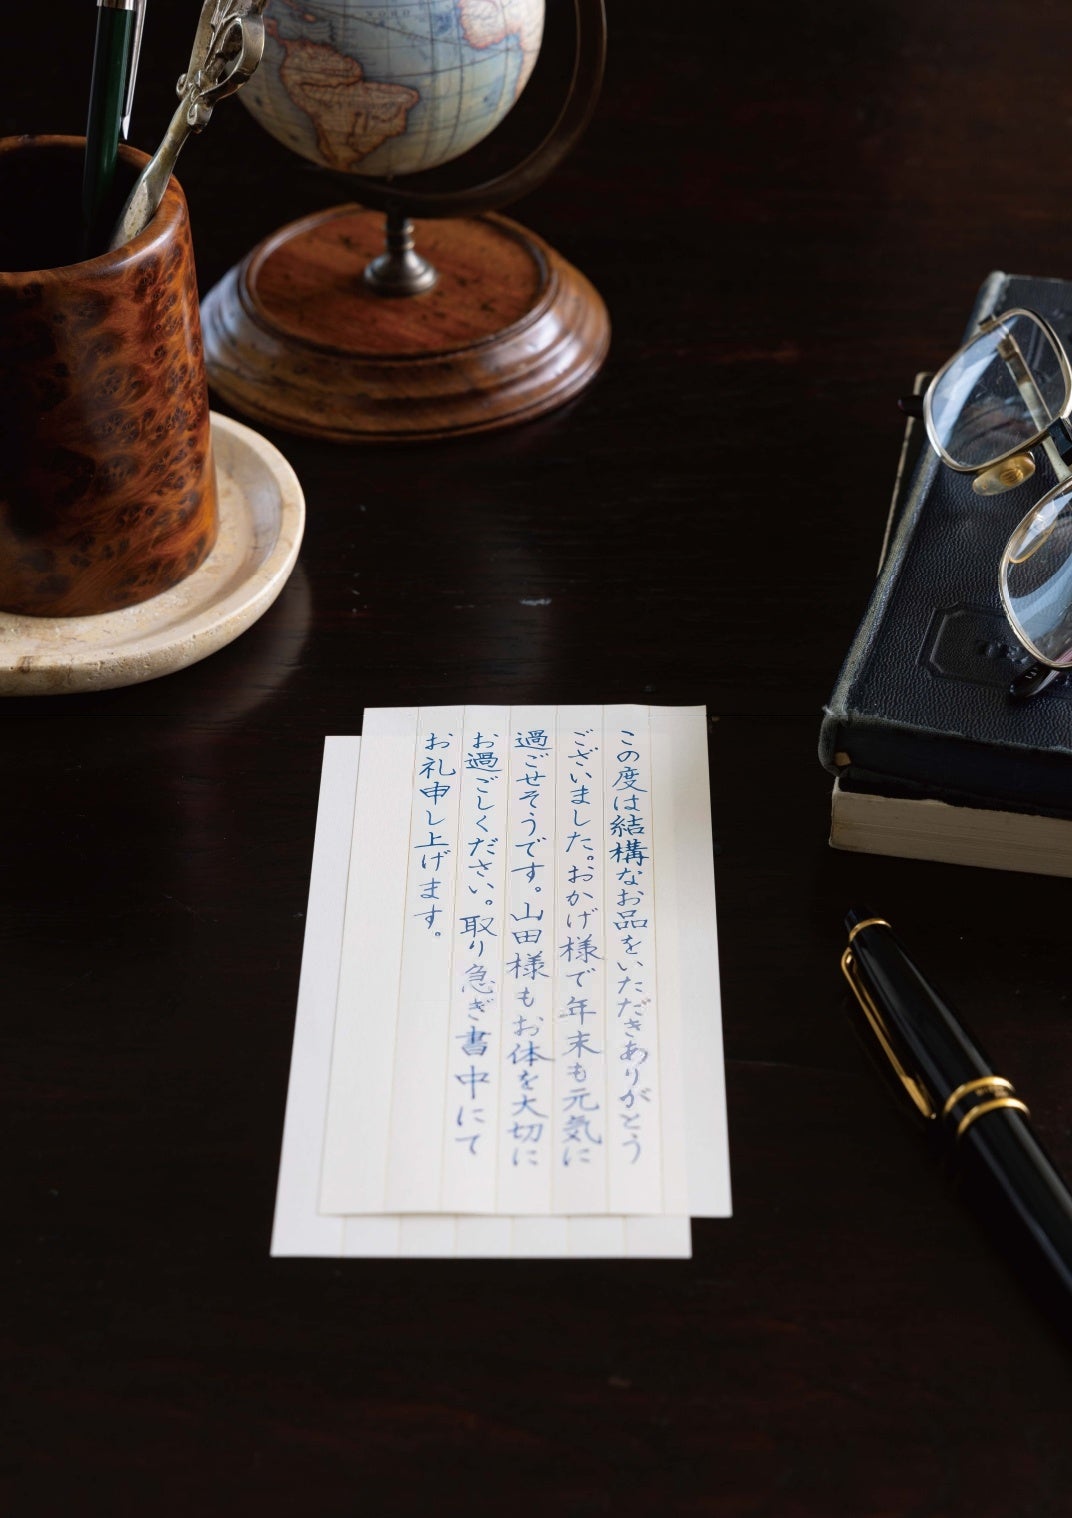 この度は結構なお品をいただきありがとう
ございました。おかげ様で年末も元気に
過ごせそうです。山田様もお体を大切に
お過ごしください。取り急ぎ書中にて
お礼申し上げます。